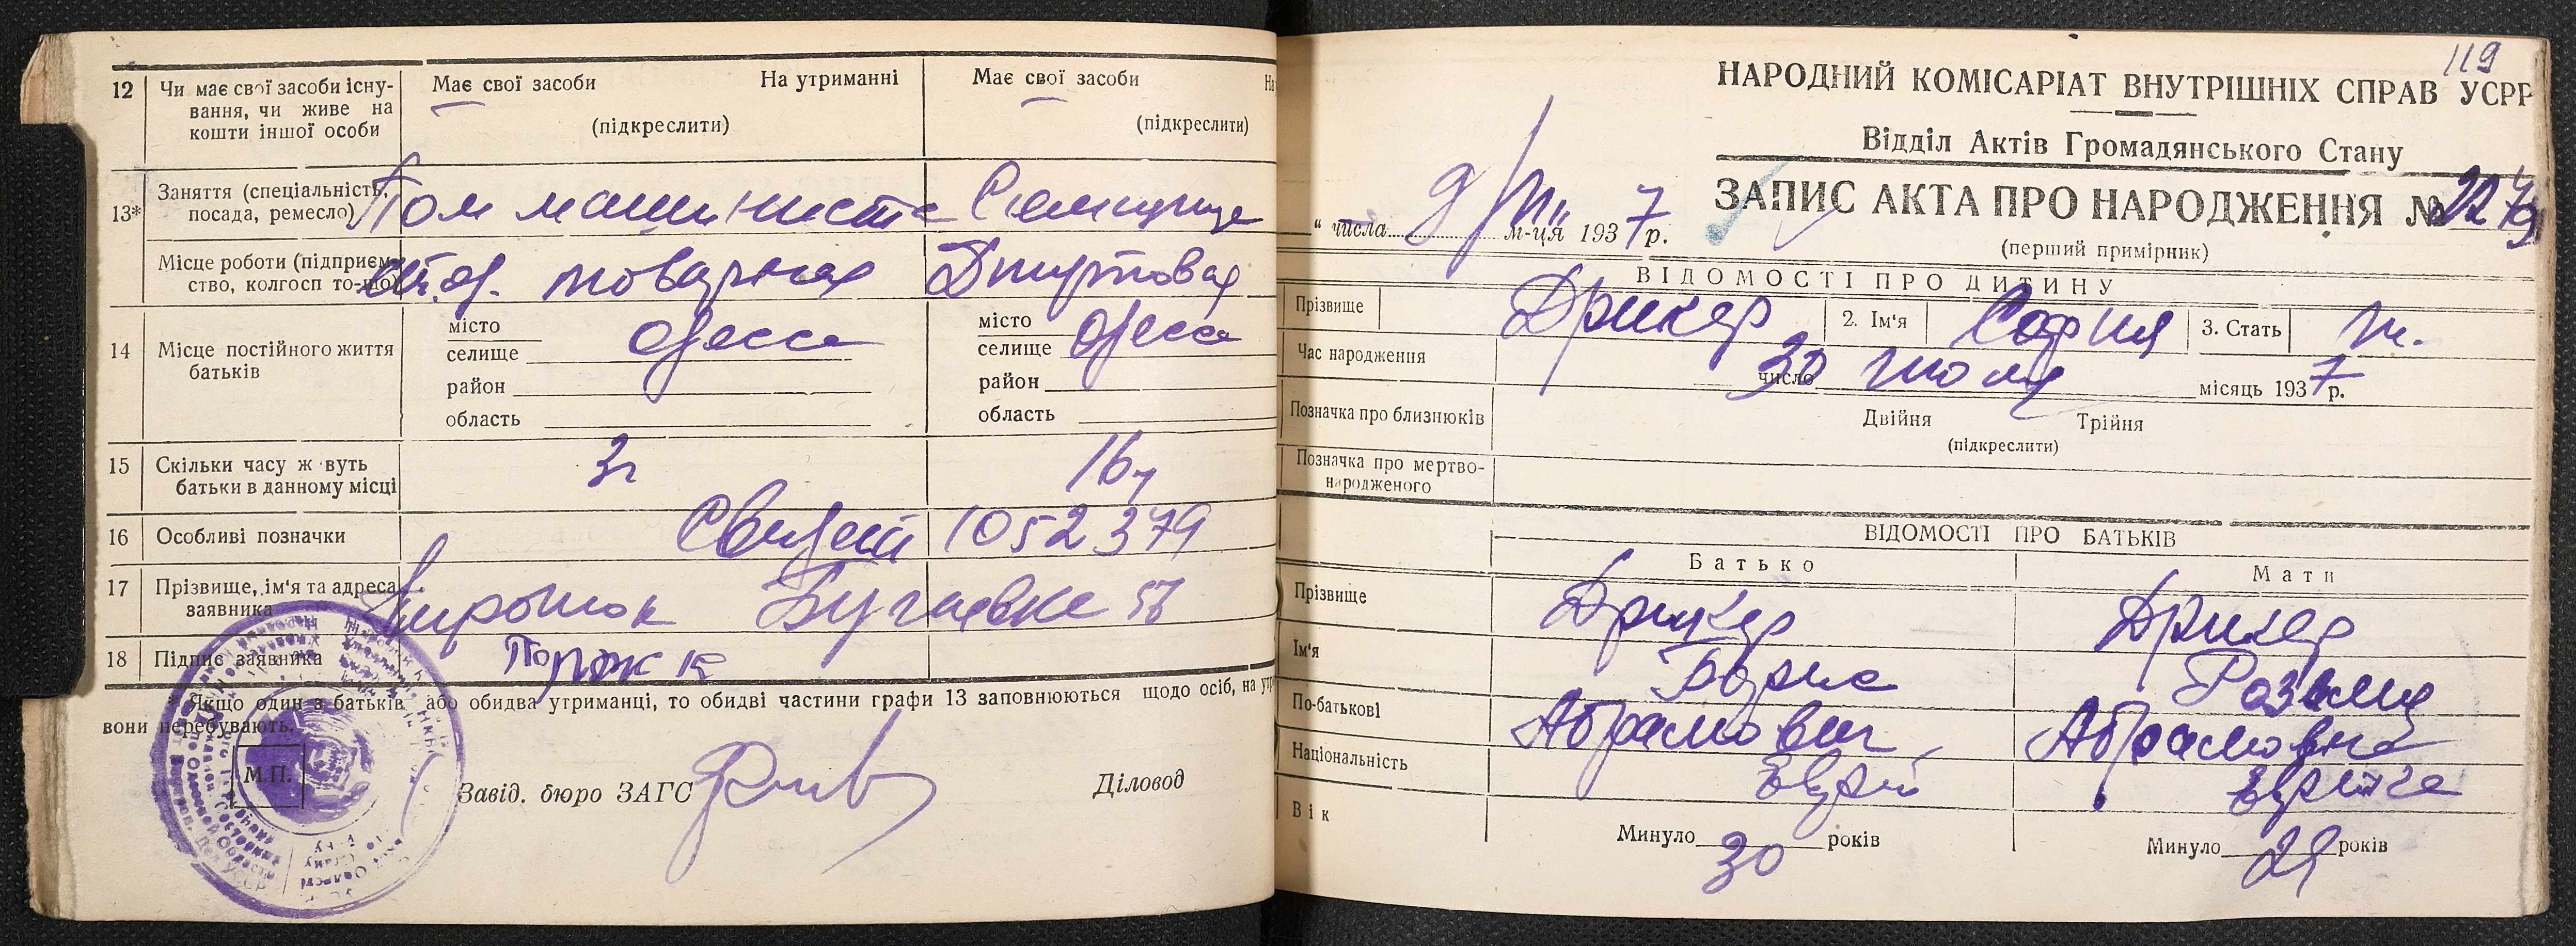 12 Чи має свої засоби існу-
вання, чи живе на
кошти іншої особи
Має свої засоби На утриманні
(підкреслити)
Має свої засоби
(підкреслити)
13* Заняття (спеціальність,
посада, ремесло)
Пом машиниста
Місце роботи (підприєм-
ство, колгосп то-що)
ст. Од. товарная
14 Місце постійного життя
батьків
місто
селище Одесса
район
область
місто
селище Одесса
район
область
15 Скільки часу живуть
батьки в данному місці
3г 16
16 Особливі позначки
Свидет 1052379
17 Прізвище, ім'я та адреса
заявника
Бугаевка
18 Підпис заявника
* Якщо один з батьків або обидва утриманці, то обидві частини графи 13 заповнюються щодо осіб, на
вони перебувають.
М.П.
Завід. бюро ЗАГС
Діловод
119
НАРОДНИЙ КОМІСАРІАТ ВНУТРІШНІХ СПРАВ УСРР
Відділ Актів Громадянського Стану
ЗАПИС АКТА ПРО НАРОДЖЕННЯ №
(перший примірник)
" числа 9/VIII м-ця 1937 р.
ВІДОМОСТІ ПРО ДИТИНУ
Прізвище Дрикер 2. Ім'я София 3. Стать ж.
Час народження
число 30 июля місяць 1937 р.
Позначка про близнюків
Двійня Трійня
(підкреслити)
Позначка про мертво-
народженого
ВІДОМОСТІ ПРО БАТЬКІВ
Батько Мати
Прізвище Дрикер Дрикер
Ім'я Борис Розалия
По-батькові Абрамович Абрамовна
Національність Еврей Еврейка
Вік
Минуло 30 років
Минуло років